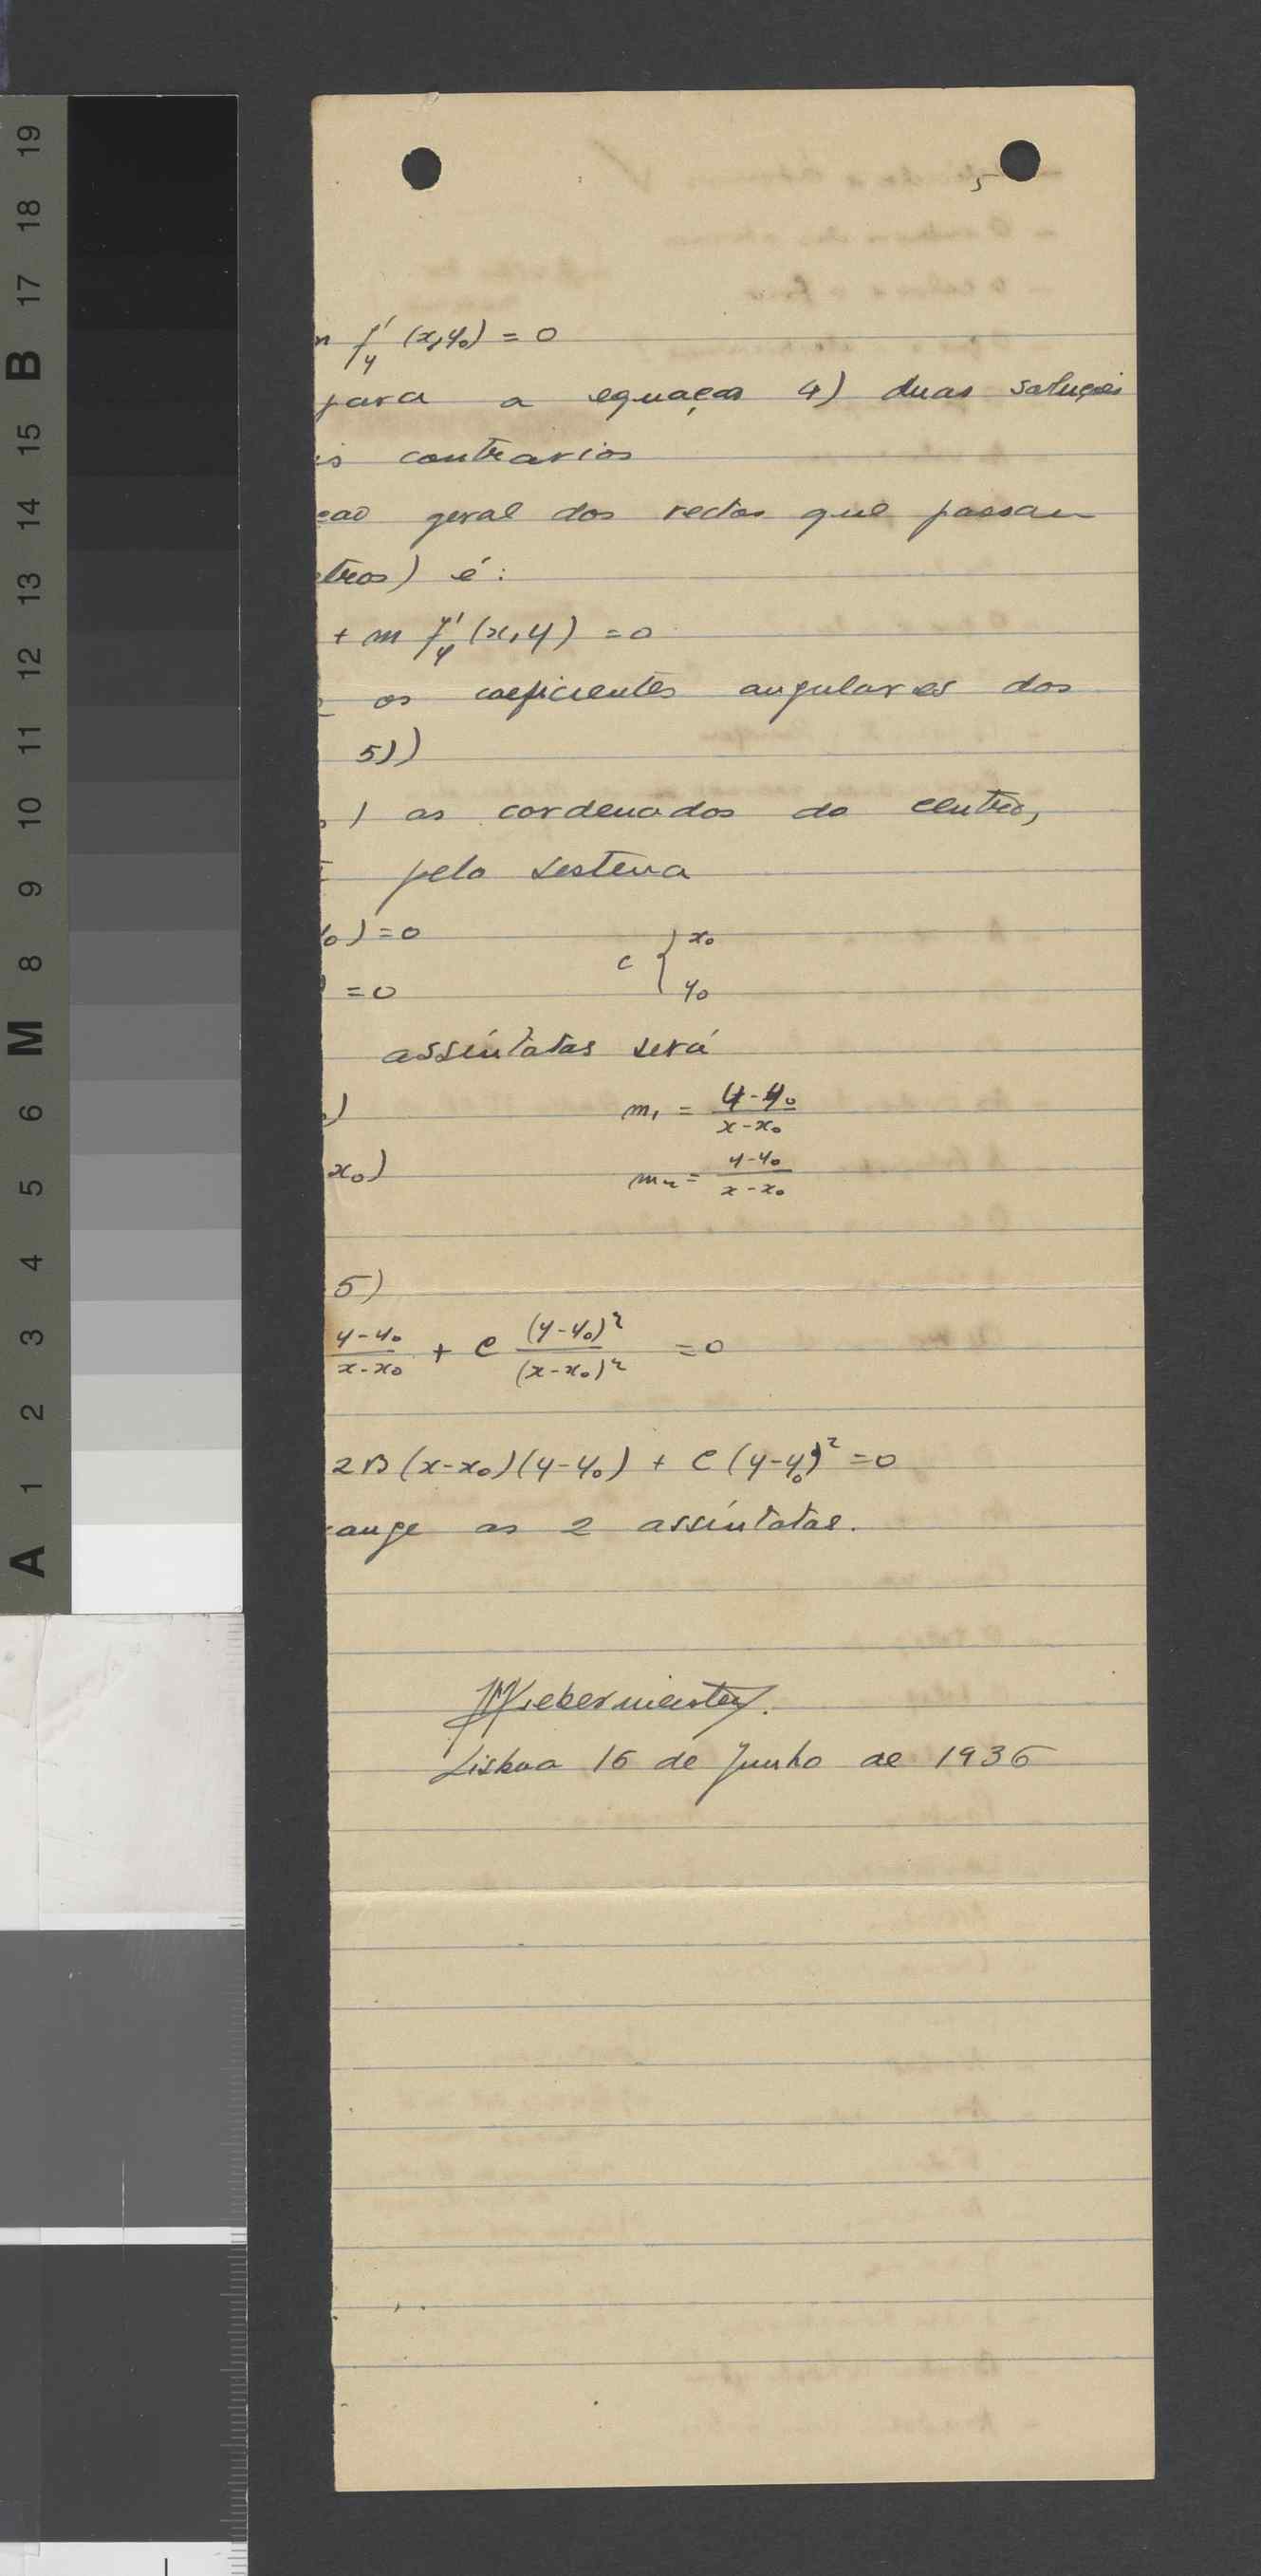 5
n f'y (x₀y₀) = 0
para a equação 4) duas soluções
is contrarios
eão geral dos rectas que passam
etros) é:
+ m f'y (x, y) = 0
os coeficientes angulares dos
5))
) as cordenados do centro,
pelo sistema
y₀) = 0 c { x₀
= 0 y₀
assíntotas será
₀) m₁ = (y-y₀)/(x-x₀)
x₀) m₂ = (y-y₀)/(x-x₀)
5)
(y-y₀)/(x-x₀) + C (y-y₀)²/(x-x₀)² = 0
2B (x-x₀)(y-y₀) + C (y-y₀)² = 0
range as 2 assíntotas.
Lisboa 16 de Junho de 1936
A 1 2 3 4 5 6 M 8 9 10 11 12 13 14 15 B 17 18 19